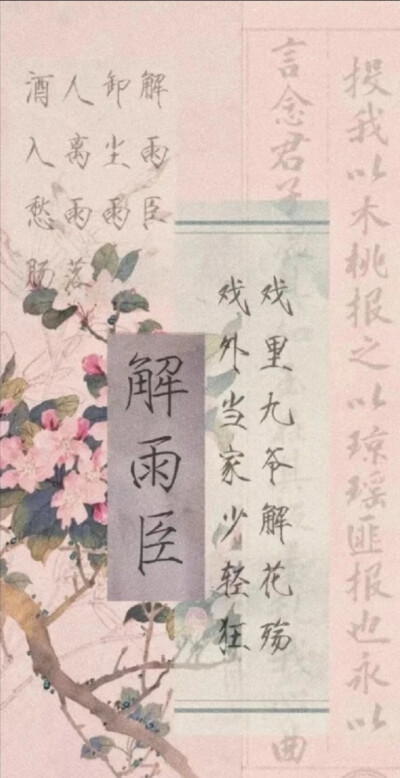 投我以木桃报之以琼瑶匪报也永以
言念君子
曲
戏里九爷解花殇
戏外当家少轻狂
解雨臣
解雨臣
卸尘雨
人离雨落
酒入愁肠